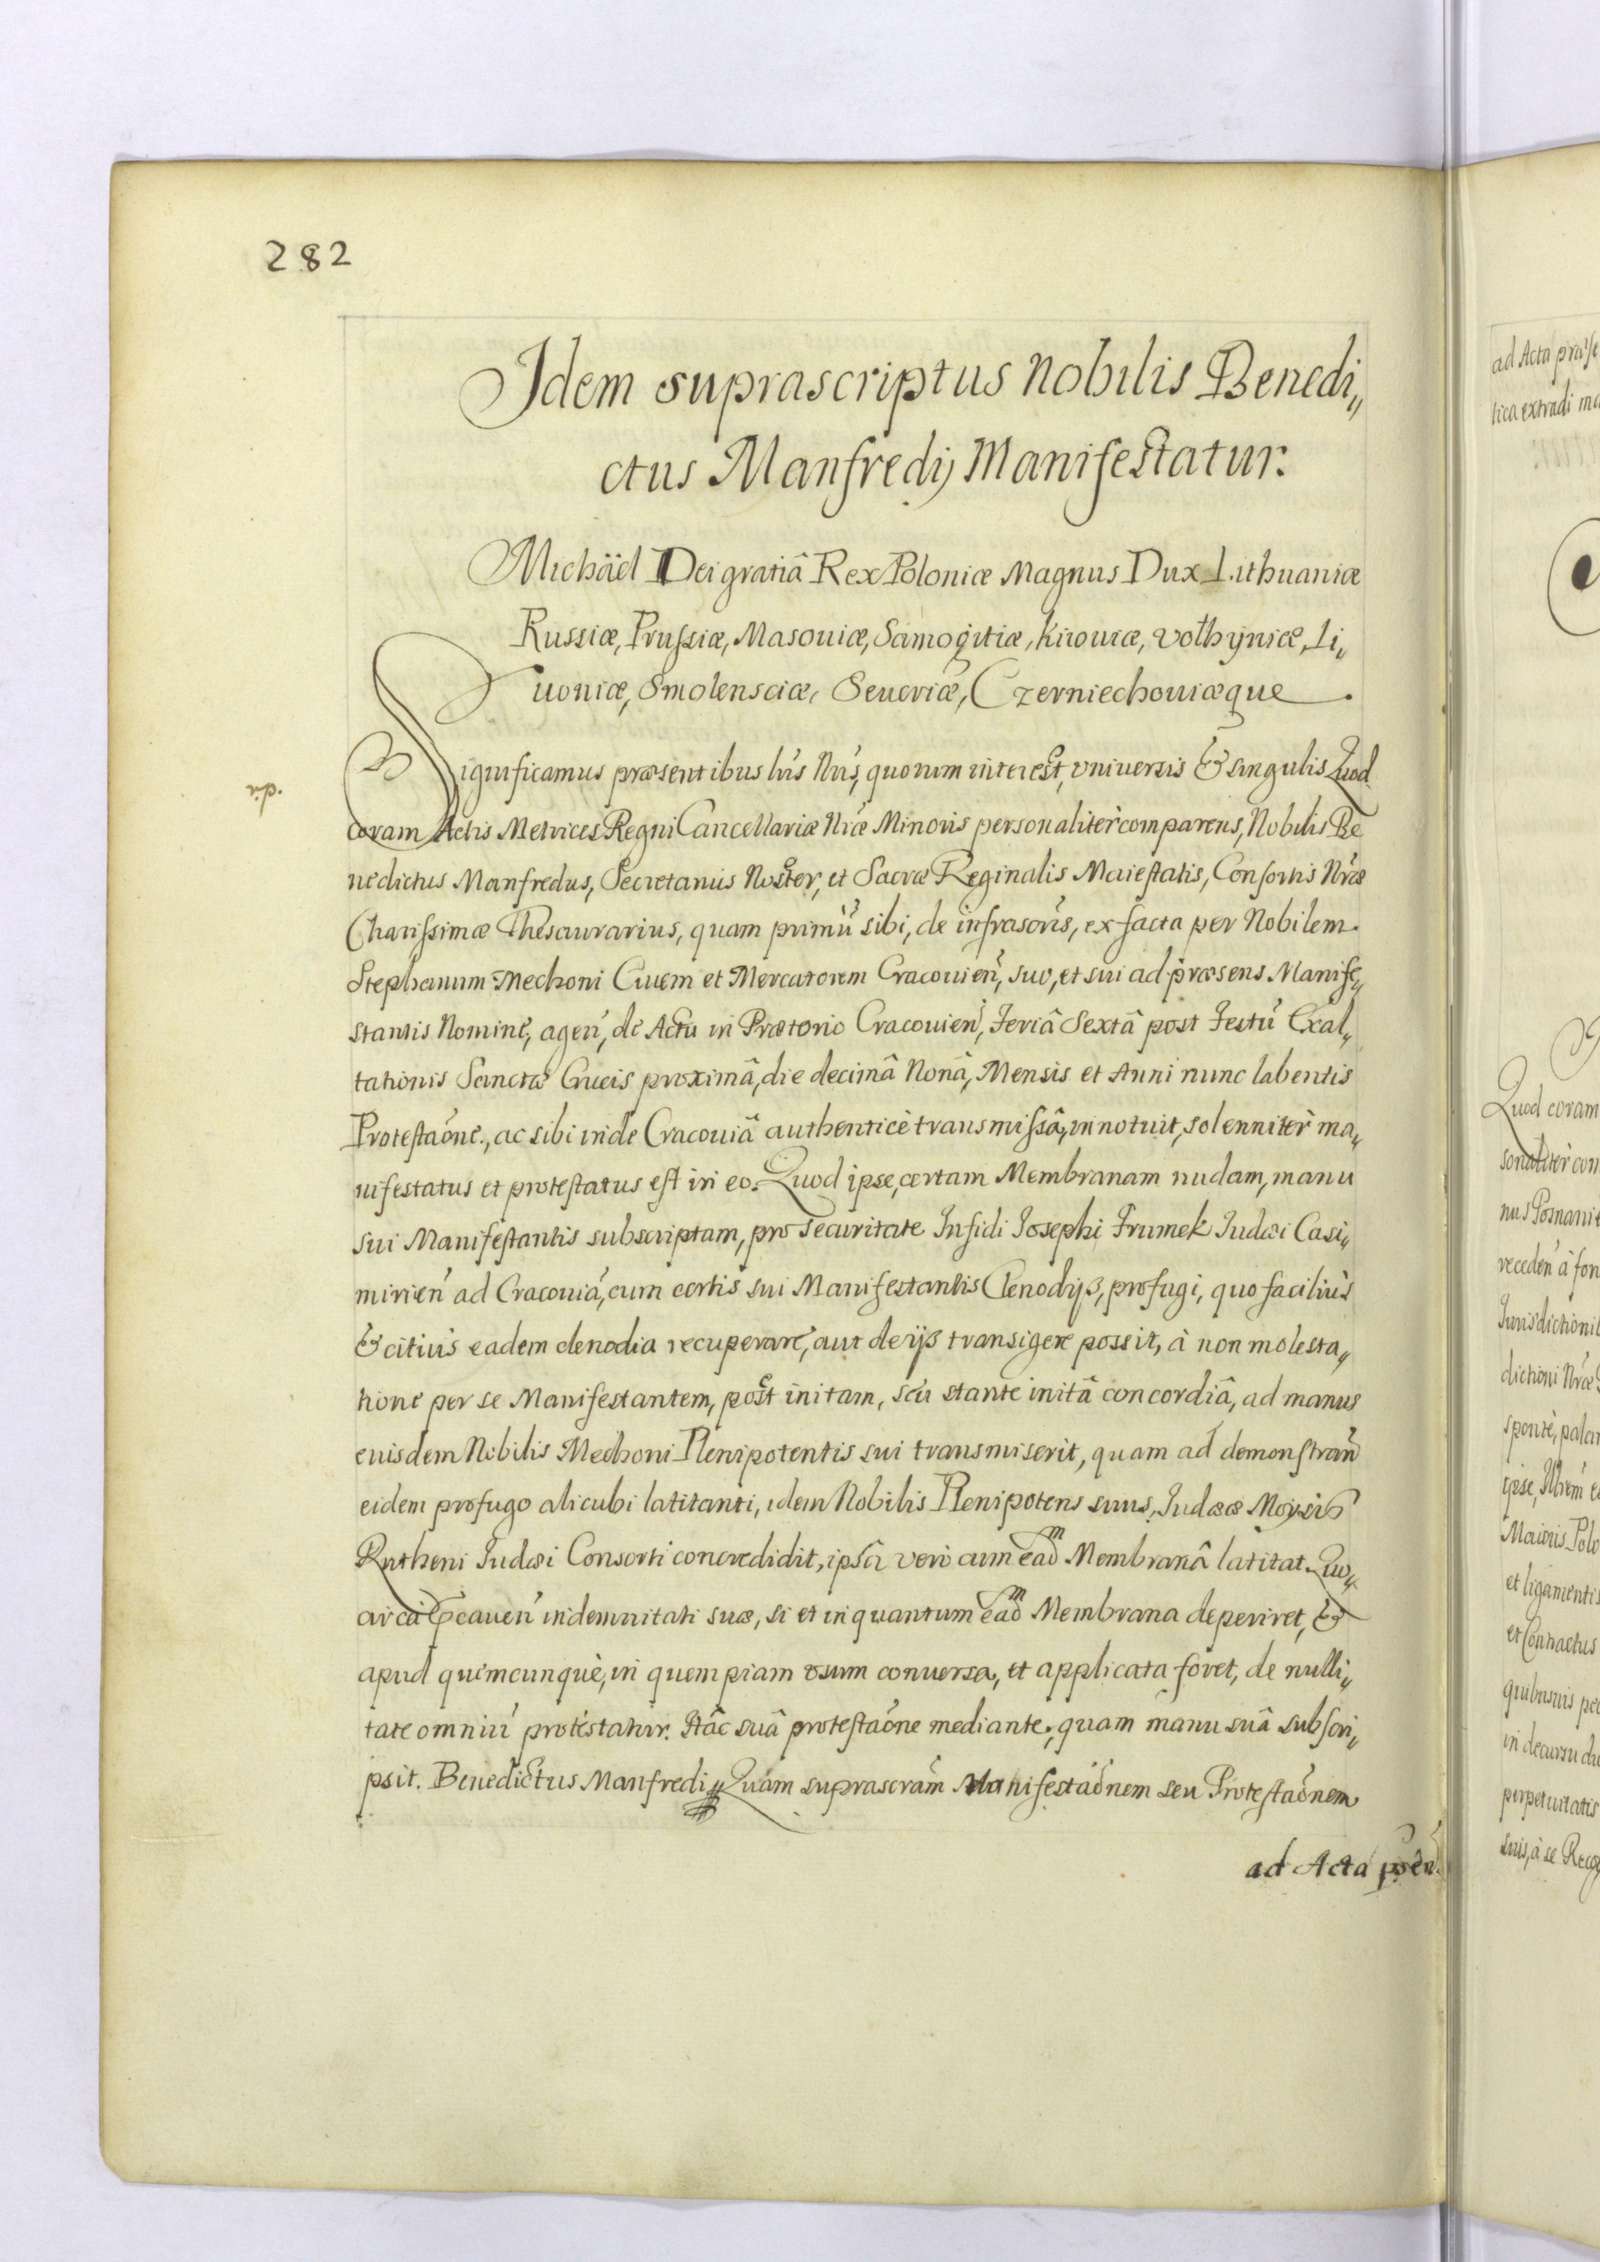 282
Idem suprascriptus Nobilis Benedi„
ctus Manfredij Manifestatur.
Michäel Dei gratiâ Rex Poloniæ Magnus Dux Lithuaniæ
Russiæ, Prussiæ, Masouiæ, Samogitiæ, Kiiouiæ, Volhyniæ, Li„
uoniæ, Smolensciæ, Seueriæ, Czerniechouiæque
Significamus præsentibus lr̃is Nr̃is, quorum interest, vniuersis & singulis Quod
coram Actis Metrices Regni Cancellariæ Nr̃æ Minoris personalitèr comparens, Nobilis Be
nedictus Manfredus, Secretarius Noster, et Sacræ Reginalis Maiestatis, Consortis Nr̃æ
Charissimæ Thesaurarius, quam primũ sibi, de infrascr̃is, ex facta per Nobilem
Stephanum Mechoni Ciuem et Mercatorem Cracouieñ, suo, et sui ad præsens Manife„
stantis Nomine, ageñ, de Actu in Prætorio Cracouieñ, Feriâ Sextâ post Festũ Exal„
tationis Sanctæ Crucis proximâ, die decimâ Nonâ, Mensis et Anni nunc labentis
Protestaõne, ac sibi inde Cracouiâ authenticè transmissâ, innotuit, solennitèr ma„
nifestatus et protestatus est in eo. Quod ipse, certam Membranam nudam, manu
sui Manifestantis subscriptam, pro securitate Infidi Iosephi Frumek Iudæi Casi„
mirieñ ad Cracouiã, cum certis sui Manifestantis Clenodijs, profugi, quo faciliùs
& citius eadem clenodia recuperare, aut de ijs transigere possit, à non molesta„
tione per se Manifestantem, post initam, seu stante initâ concordiâ, ad manus
eiusdem Nobilis Mechoni Plenipotentis sui transmiserit, quam ad demonstrañ
eidem profugo alicubi latitanti, idem Nobilis Plenipotens suus, Iudææ Moysis
Rutheni Iudæi Consorti concredidit, ipsa verò cum eadm Membranâ latitat. Quo„
circa præcaueñ indemnitati suæ, si et in quantum eadm Membrana deperiret, &
apud quemcunquè, in quempiam vsum conuersa, et applicata foret, de nulli„
tate omniũ protestatur. Hâc suâ protestaõne mediante, quam manu suâ subscri„
psit. Benedictus Manfredi„ Quam suprascr̃am Manifestaõnem seu Protestaõnem
ad Acta
ad Acta
Quod coram